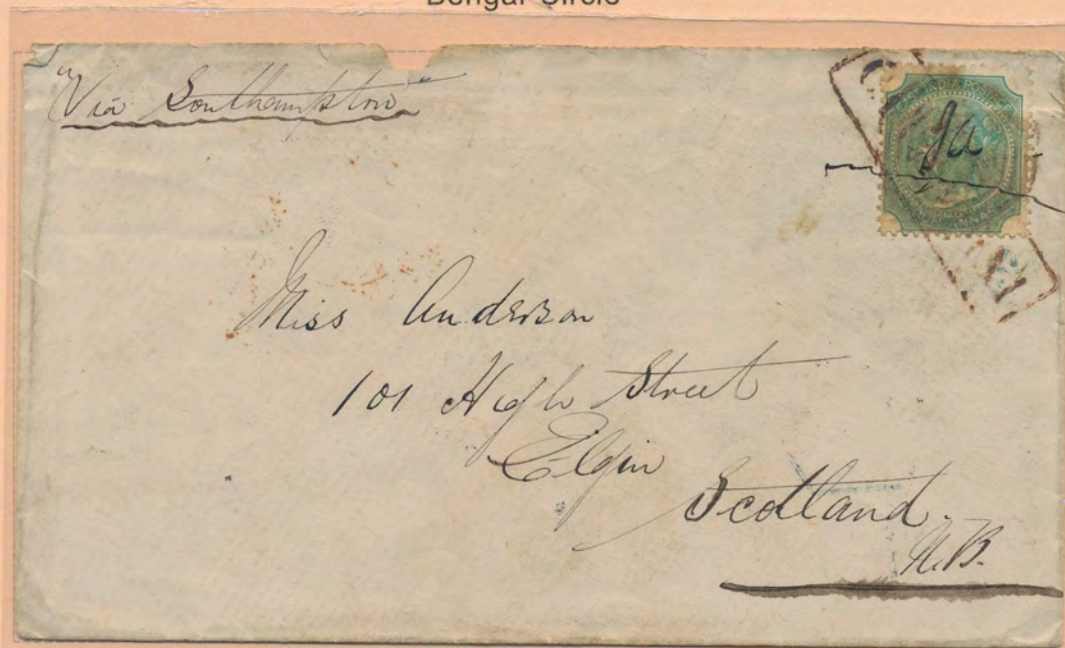 Bengal Circle
"Via Southampton"
Miss Anderson
101 High Street
Elgin
Scotland.
N.B.